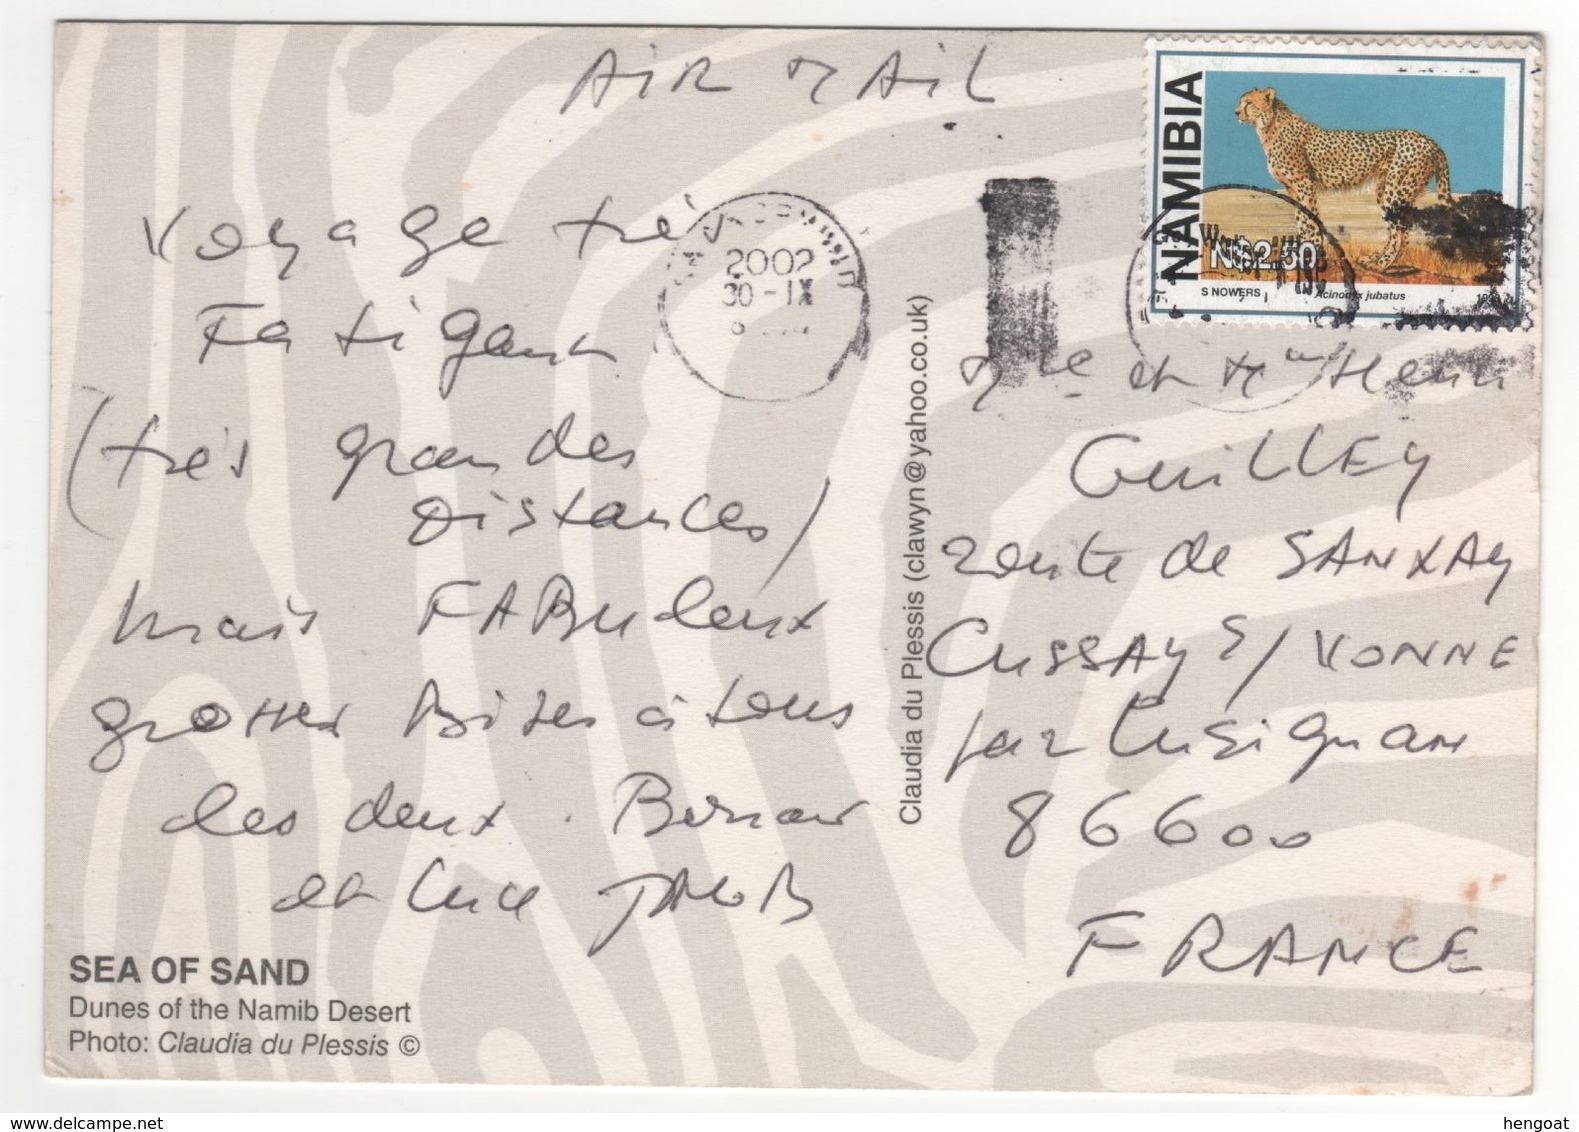 AIR MAIL
NAMIBIA
N$2.50
S NOWERS
Acinonyx jubatus
2002
30 - IX
Voyage très
Fatigant
(très grandes
distances)
mais FABuleux
grosses Bises à tous
les deux. Bernar
et Luce JACOB
Mr et Mme Henri
GuiLLEy
route de SANXAy
CussAy s/ VONNE
par Lusignan
86600
FRANCE
Claudia du Plessis (clawyn@yahoo.co.uk)
SEA OF SAND
Dunes of the Namib Desert
Photo: Claudia du Plessis ©
hengoat